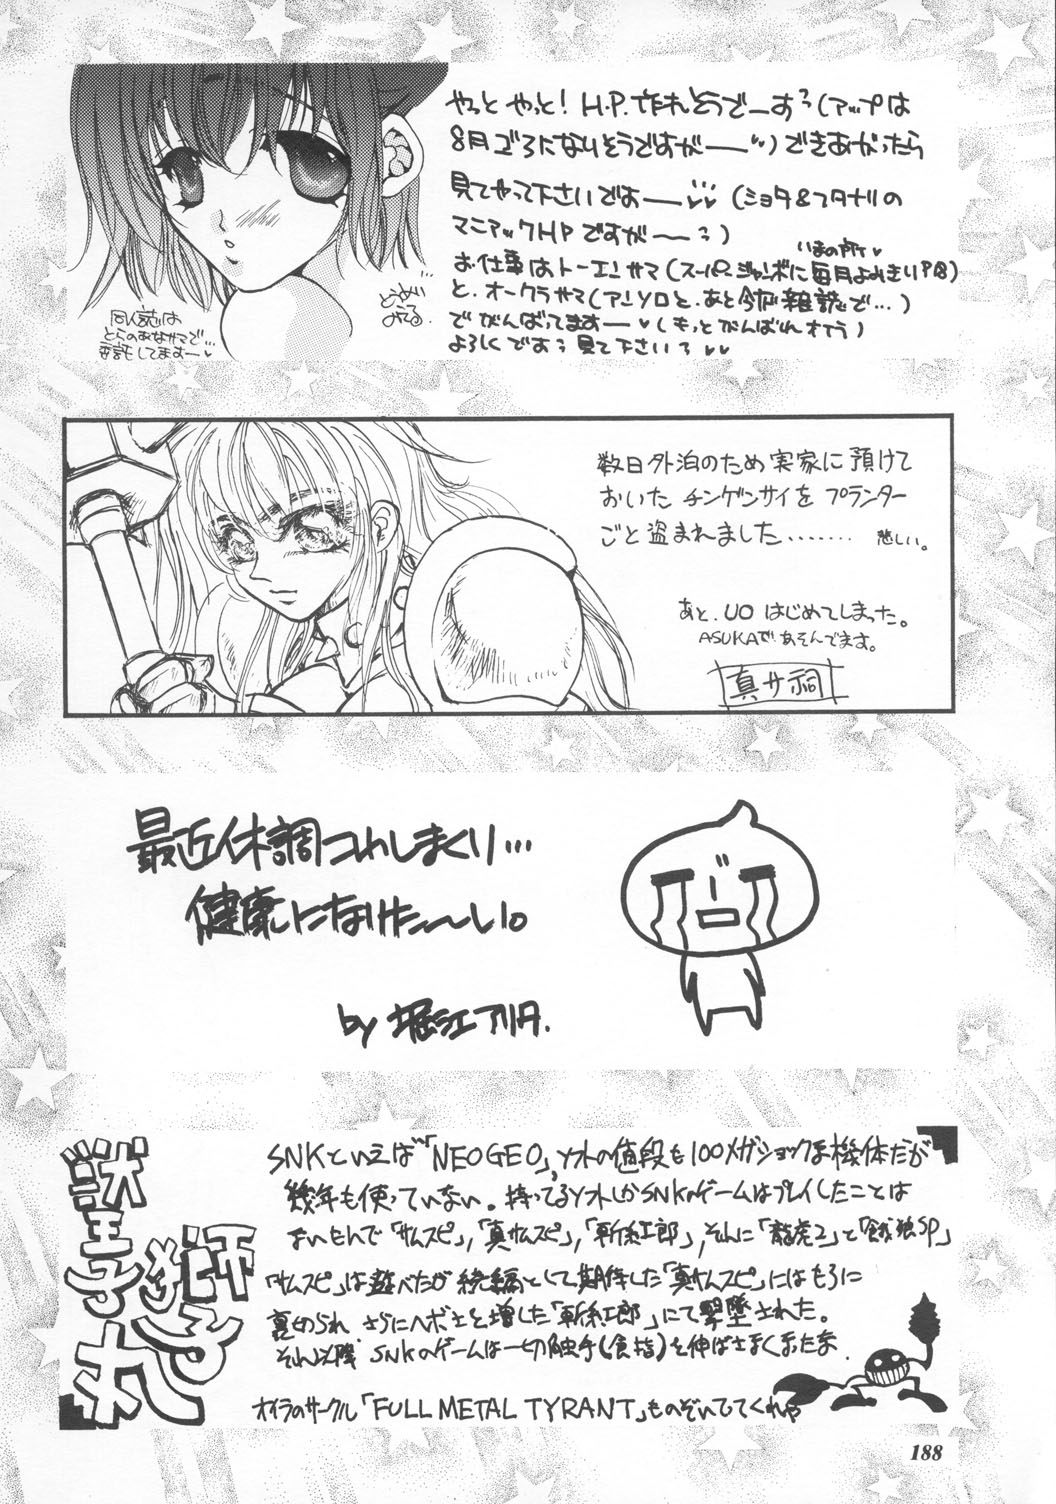 やっと やっと! H.P. 作れそうでーす♡(アップは
8月ゴロになりそうですがー♡)できあがったら
見てやって下さいですよー♡♡(ショタ&フタナリの
マニアックHPですがー♡)
いまの所♡
お仕事はトーエンサマ(スーパージャンボに毎月よみきり8P)
と、オークラサマ(アンソロと、あと今だ雑誌で…)
でがんばってますー♡(もっとがんばんなさい)
よろしくです♡見て下さい♡♡
どうめい
みてる
同人誌は
とらのあなサマで…
委託してますー♡
数日外泊のため実家に預けて
おいた チンゲンサイを プランター
ごと 盗まれました……… 悲しい。
あと、UO はじめてしまった。
ASUKAで あそんでます。
真サ祠
最近体調コワしまくり…
健康になりた〜い。
by 堀江アリタ.
獣王子獅子丸
SNKといえば「NEOGEO」、ソフトの値段も100メガショックな機体だが
幾年も使っていない。持ってるソフトしかSNKのゲームはプレイしたことは
ないもんで「サムスピ」,「真サムスピ」,「斬紅郎」,それに「龍虎2」と「餓狼SP」
「サムスピ」は遊べたが 続編として期待した「真サムスピ」にはもろに
裏切られ さらにヘボさを増した「斬紅郎」にて撃墜された。
それ以降 SNKのゲームは一切触手(食指)を伸ばさなくなったな.
オイラのサークル「FULL METAL TYRANT」ものぞいてってくれや
188